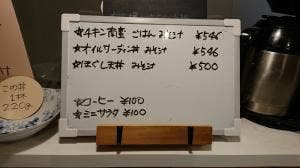 ☆チキン南蛮 ごはん みそ汁 ¥546
☆オイルサーディン丼 みそ汁 ¥546
☆ほぐし天丼 みそ汁 ¥500
☆コーヒー ¥100
☆ミニサラダ ¥100
この丼
1杯
220g